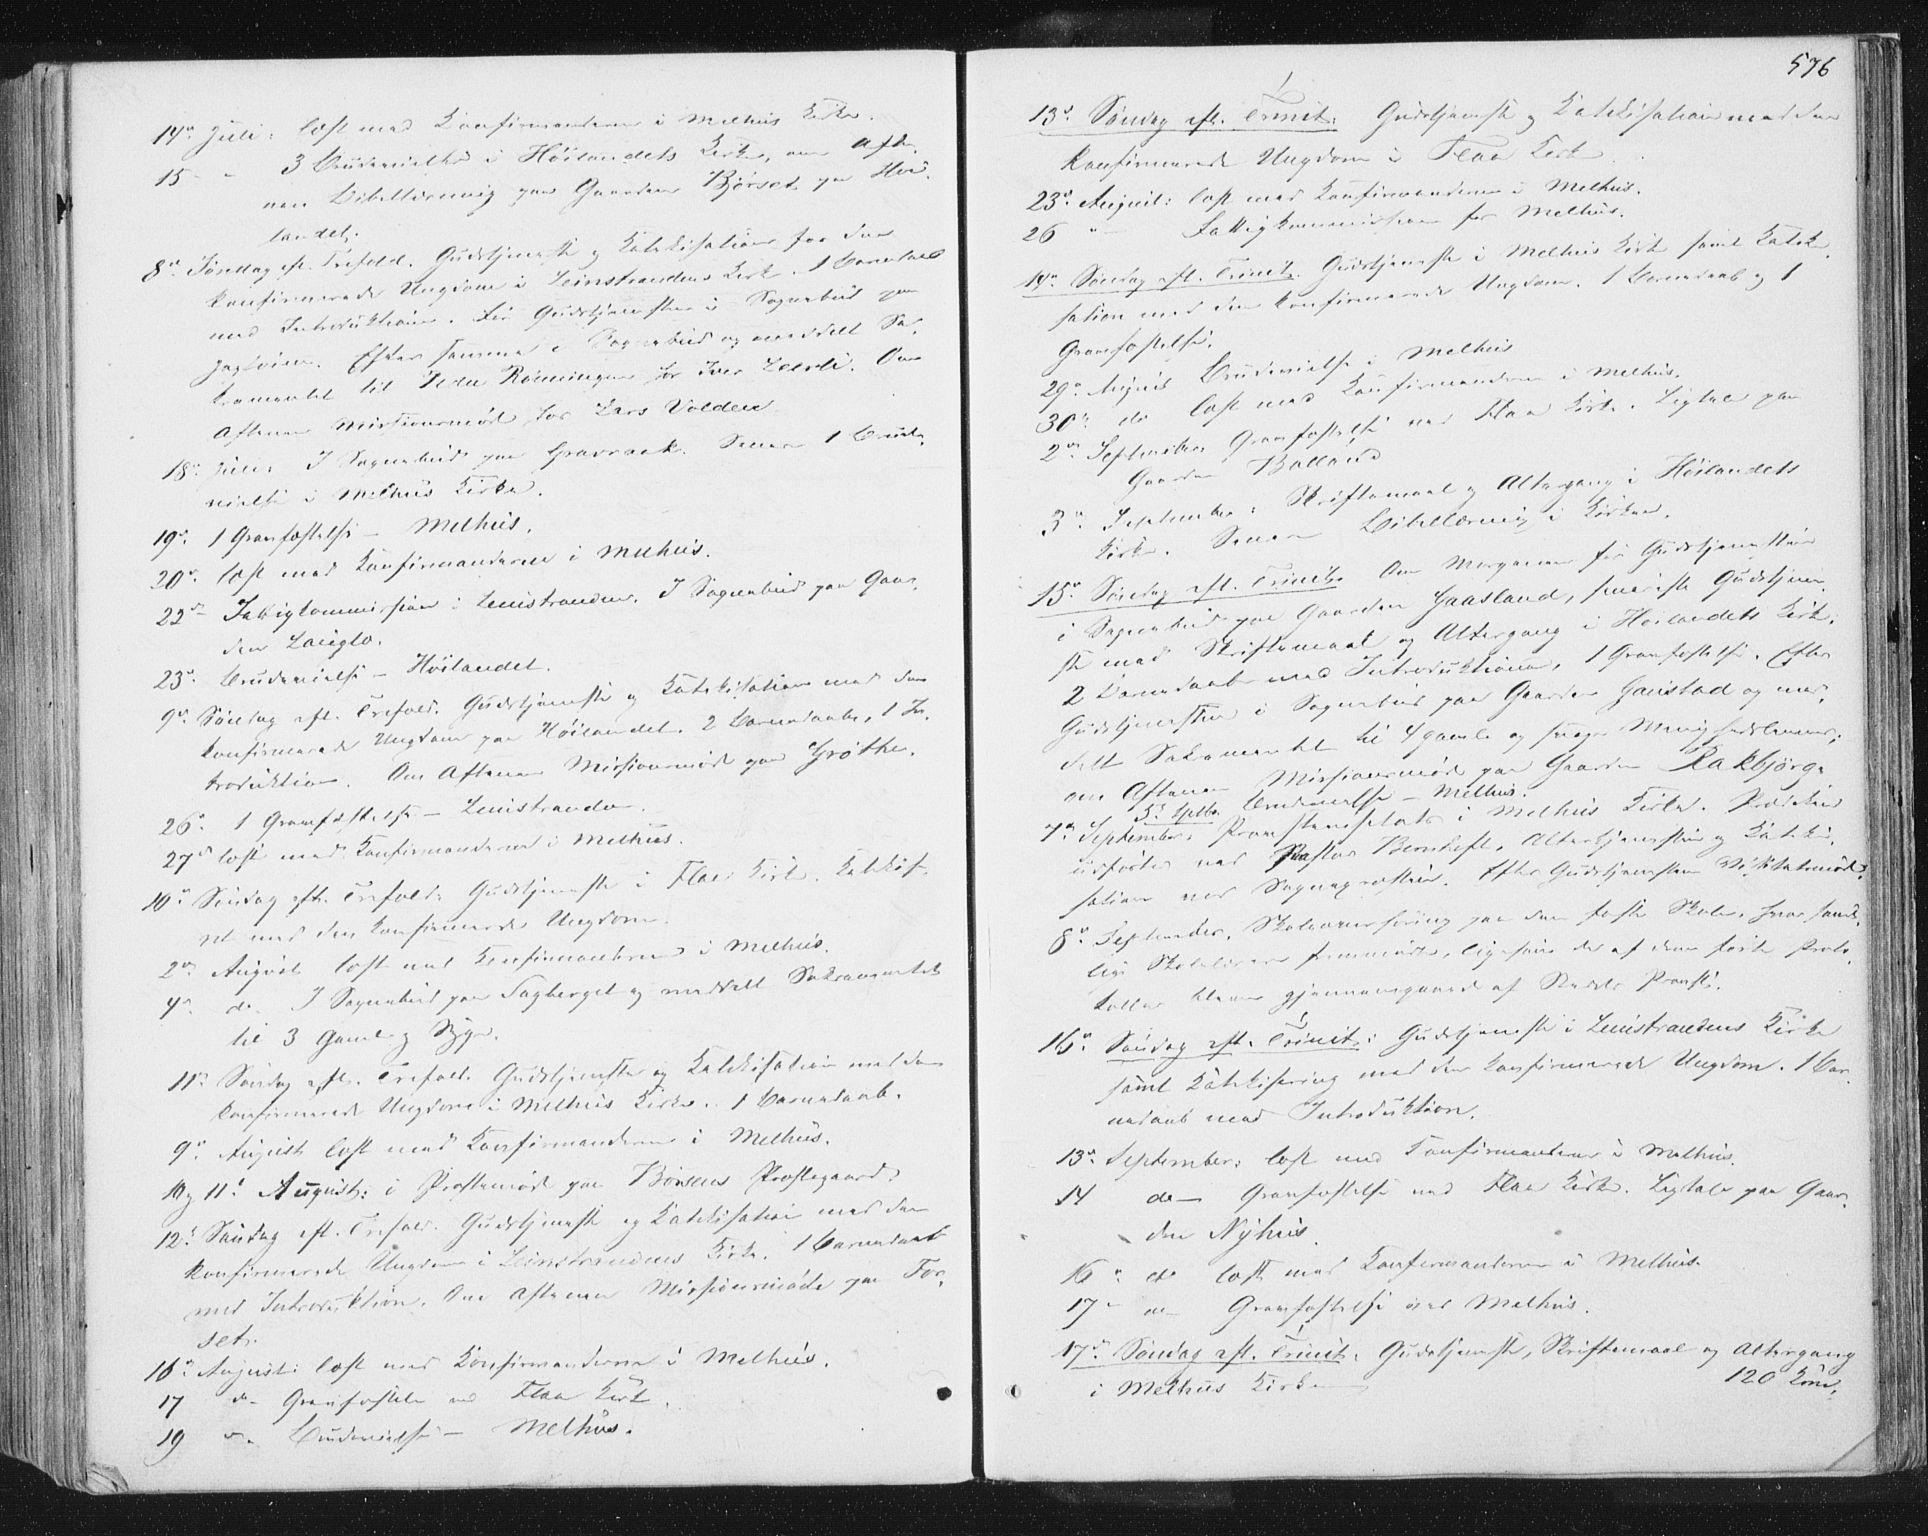 14de Juli: læst med Konfirmanderne i Melhus Kirke.
15 " 3 Brudevielser i Høilandets Kirke, om Afte-
nen Bibellæsning paa Gaarden Bjørset paa Høi-
landet.
8de Søndag eft. Trefold. Gudstjeneste og Katekisation for den
konfirmerede Ungdom i Leinstrandens Kirke. 1 Barnedaab
med Introduktion. Før Gudstjenesten i Sognebud paa
Efter samme i Sognebud og meddelt Sa-
kramentet til Peder Rønningen hos Iver Leerli. Om
Aftenen Missionsmøde hos Lars Volden
18de Juli I Sognebud paa Gravraak. Senere 1 Brude-
vielse i Melhus Kirke.
19de 1 Gravfæstelse – Melhus.
20de læst med Konfirmanderne i Melhus.
22de Fattigkommission i Leinstranden. I Sognebud paa Gaar-
den Langlo.
23de Brudevielse – Høilandet.
9de Søndag eft. Trefold. Gudstjeneste og Katekisation med den
konfirmerede Ungdom paa Høilandet. 2 Barnedaabe, 1 In-
troduktion. Om Aftenen Missionsmøde paa Grøthe.
26de 1 Gravfæstelse – Leinstranden.
27de læst med Konfirmanderne i Melhus.
10de Søndag eft. Trefold: Gudstjeneste i Flaa Kirke. Katekise-
ret med den konfirmerede Ungdom.
2den August læst med Konfirmanderne i Melhus.
4de do. I Sognebud paa Fagberget og meddelt Sakramentet
til 3 Gamle og Syge.
11te Søndag eft. Trefold. Gudstjeneste og Katekisation med den
konfirmerede Ungdom i Melhus Kirke. 1 Barnedaab.
9de August læst med Konfirmanderne i Melhus.
10 og 11te August: i Præstemøde paa Børsens Præstegaard.
12te Søndag eft. Trefold. Gudstjeneste og Katekisation med den
konfirmerede Ungdom i Leinstrandens Kirke. 1 Barnedaab
med Introduktion. Om Aftenen Missionsmøde paa For-
set.
16de August: læst med Konfirmanderne i Melhus.
17 do Gravfæstelse ved Flaa Kirke.
19 do. Brudevielse – Melhus.
576
13de Søndag eft. Trinit: Gudstjeneste og Katekisation med den
konfirmerede Ungdom i Flaa Kirke
23de August: læst med Konfirmanderne i Melhus.
26 " Fattigkommission for Melhus.
14de Søndag eft. Trinit. Gudstjeneste i Melhus Kirke samt Kateki-
sation med den konfirmerede Ungdom. 1 Barnedaab og 1
Gravfæstelse.
29de August Brudevielse i Melhus
30te do læst med Konfirmanderne i Melhus.
2den September Gravfæstelse ved Flaa Kirke. Ligtale paa
Gaarden Balland
3die September: Skriftemaal og Altergang i Høilandets
Kirke. Senere Bibellæsning i Kirken.
15de Søndag eft. Trinit: Om Morgenen før Gudstjenesten
i Sognebud paa Gaarden Gaasland, senere Gudstjene-
ste med Skriftemaal og Altergang i Høilandets Kirke.
2 Barnedaabe med Introduktion, 1 Gravfæstelse. Efter
Gudstjenesten i Sognebud paa Gaarden Gaustad og med-
delt Sakramentet til 4 gamle og svage Menighedslemmer;
om Aftenen Missionsmøde paa Gaarden Rakbjørg.
5te Septbr Brudevielse – Melhus.
7de September: Provstevisitats i Melhus Kirke. Prædiken
udførtes ved Pastor Bernhoft, Altertjenesten og Kateki-
sation ved Sognepræsten. Efter Gudstjenesten
8de September. Skoleoverhøring paa den faste Skole, hvor samt-
lige Skolelærere fremmødte, ligesom de af dem førte Proto-
koller bleve gjennemgaaede af Stedets Provst.
16de Søndag eft. Trinit: Gudstjeneste i Leinstrandens Kirke
samt Katekisering med den konfirmerede Ungdom. 1 Bar-
nedaab med Introduktion.
13de September: læst med Konfirmanderne i Melhus.
14 do – Gravfæstelse ved Flaa Kirke. Ligtale paa Gaar-
den Nyhus.
16de do læst med Konfirmanderne i Melhus.
17de do Gravfæstelse ved Melhus.
17de Søndag eft. Trinit: Gudstjeneste, Skriftemaal og Altergang
i Melhus Kirke 120 Kom.